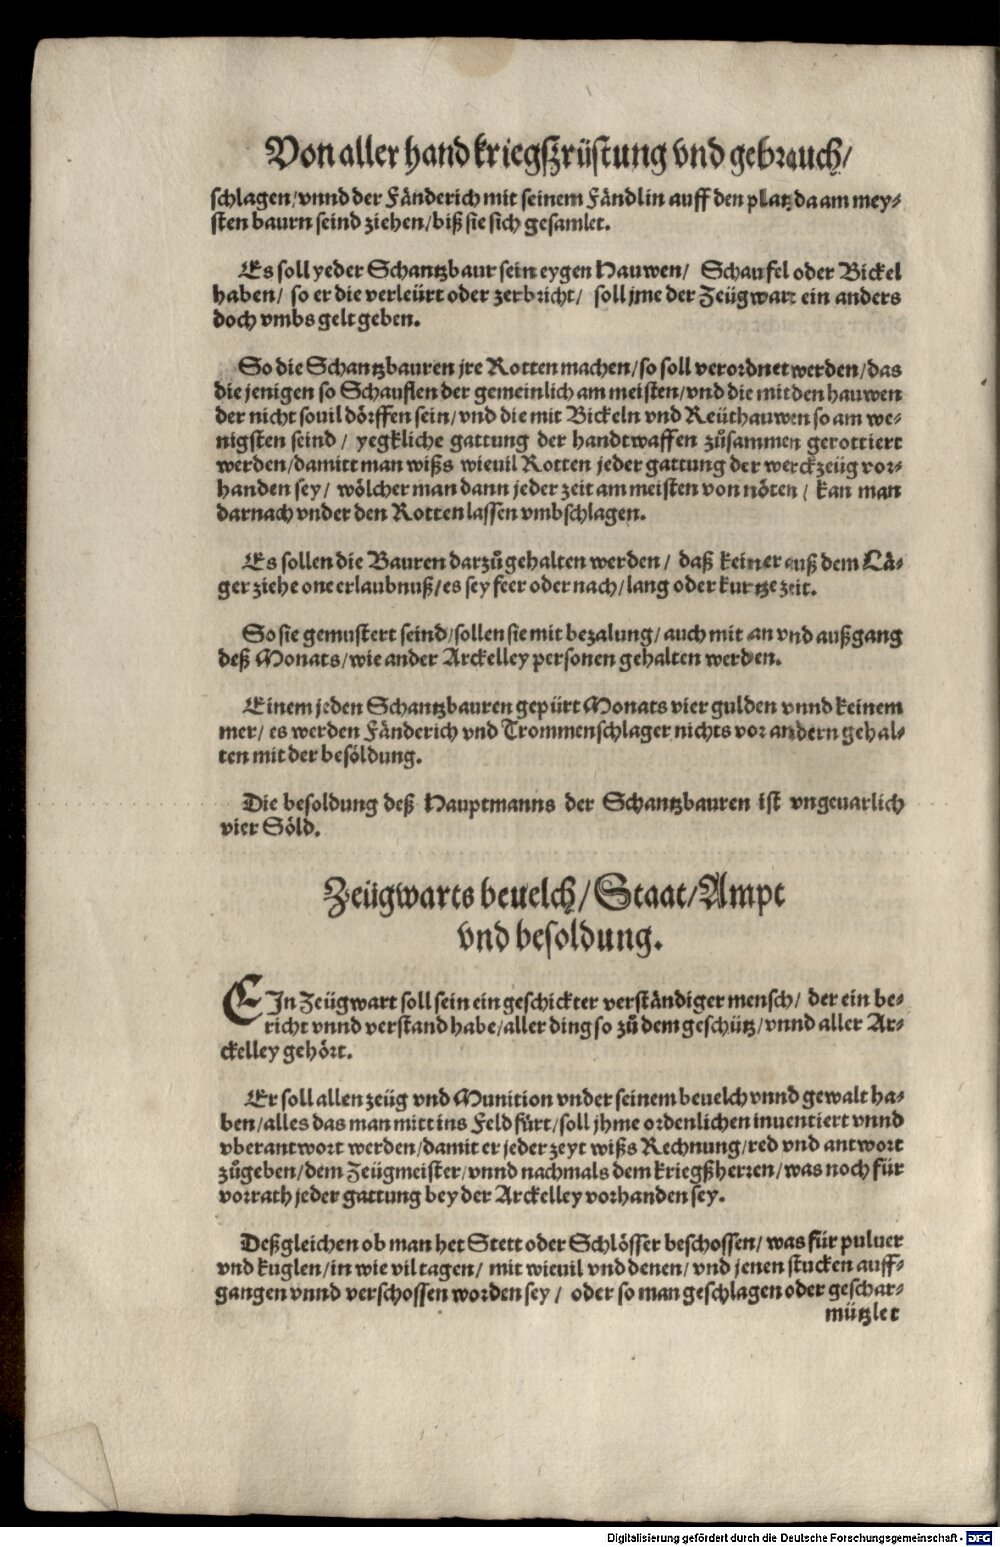 Von aller hand kriegszrüstung vnd gebrauch/
schlagen/vnnd der Fänderich mit seinem Fändlin auff den platz da am mey⸗
sten baurn seind ziehen/biß sie sich gesamlet.
Es soll yeder Schantzbaur sein eygen Hauwen/ Schaufel oder Bickel
haben/ so er die verleürt oder zerbricht/ soll jme der Zeügwart ein anders
doch vmbs gelt geben.
So die Schantzbauren jre Rotten machen/so soll verordnet werden/das
die jenigen so Schauflen der gemeinlich am meisten/vnd die mit den hauwen
der nicht souil dörffen sein/vnd die mit Bickeln vnd Reüthauwen so am we⸗
nigsten seind/ yegkliche gattung der handtwaffen zůsammen gerottiert
werden/damitt man wißs wieuil Rotten jeder gattung der werckzeüg vor⸗
handen sey/ wölcher man dann jeder zeit am meisten von nöten/ kan man
darnach vnder den Rotten lassen vmbschlagen.
Es sollen die Bauren darzů gehalten werden/ daß keiner auß dem Lä⸗
ger ziehe one erlaubnuß/es sey feer oder nach/lang oder kurtze zeit.
So sie gemustert seind/sollen sie mit bezalung/auch mit an vnd außgang
deß Monats/wie ander Arckelley personen gehalten werden.
Einem jeden Schantzbauren gepürt Monats vier gulden vnnd keinem
mer/ es werden Fänderich vnd Trommenschlager nichts vor andern gehal⸗
ten mit der besöldung.
Die besoldung deß Hauptmanns der Schantzbauren ist vngeuarlich
vier Söld.
Zeügwarts beuelch/Staat/Ampt
vnd besoldung.
EIn Zeügwart soll sein ein geschickter verständiger mensch/ der ein be⸗
richt vnnd verstand habe/aller ding so zů dem geschütz/vnnd aller Ar⸗
ckelley gehört.
Er soll allen zeüg vnd Munition vnder seinem beuelch vnnd gewalt ha⸗
ben/alles das man mitt ins Feld fürt/soll jhme ordenlichen inuentiert vnnd
vberantwort werden/damit er jeder zeyt wißs Rechnung/red vnd antwort
zůgeben/dem Zeügmeister/vnnd nachmals dem kriegßherren/was noch für
vorrath jeder gattung bey der Arckelley vorhanden sey.
Deßgleichen ob man het Stett oder Schlösser beschossen/was für puluer
vnd kuglen/in wie vil tagen/ mit wieuil vnd denen/vnd jenen stucken auff⸗
gangen vnnd verschossen worden sey/ oder so man geschlagen oder geschar⸗
mützlet
Digitalisierung gefördert durch die Deutsche Forschungsgemeinschaft - DFG